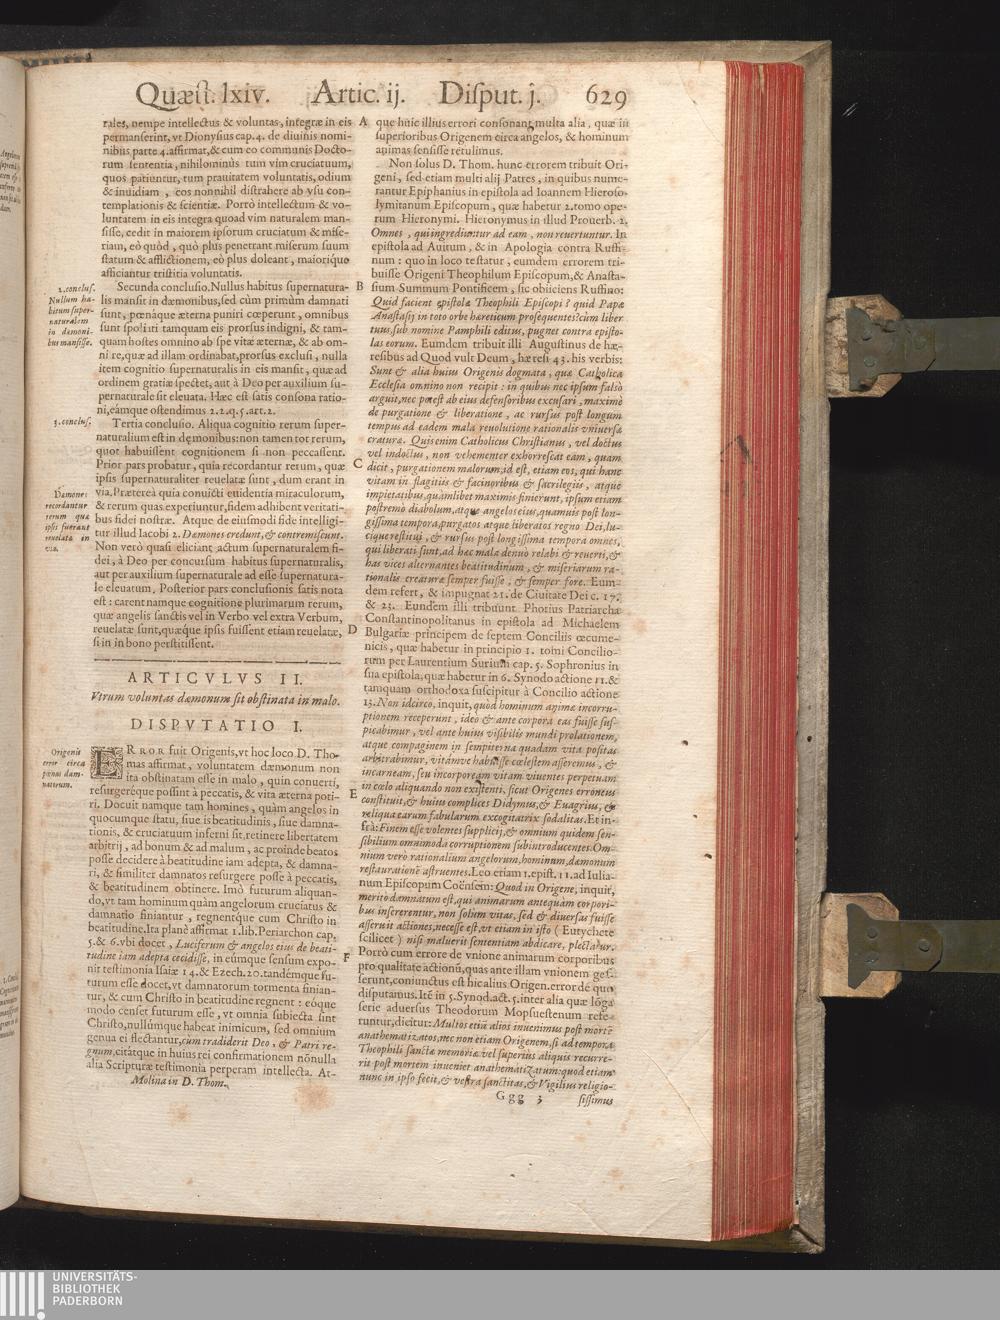 Quæst. lxiv. Artic. ij. Disput. j. 629
rales, nempe intellectus & voluntas, integræ in eis
permanserint, vt Dionysius cap. 4. de diuinis nomi-
nibus parte 4. affirmat, & cum eo communis Docto-
rum sententia, nihilominùs tum vim cruciatuum,
quos patiuntur, tum prauitatem voluntatis, odium
& inuidiam, eos nonnihil distrahere ab vsu con-
templationis & scientiæ. Porrò intellectum & vo-
luntatem in eis integra quoad vim naturalem man-
sisse, cedit in maiorem ipsorum cruciatum & mise-
riam, eò quòd, quò plus penetrant miserum suum
statum & afflictionem, eò plus doleant, maiorique
afficiantur tristitia voluntatis.
2. conclus.
Nullum ha-
bitum super-
naturalem
in dæmoni-
bus mansisse.
Secunda conclusio. Nullus habitus supernatura-
lis mansit in dæmonibus, sed cùm primùm damnati
sunt, pœnáque æterna puniri cœperunt, omnibus
sunt spoliati tamquam eis prorsus indigni, & tam-
quam hostes omnino ab spe vitæ æternæ, & ab om-
ni re, quæ ad illam ordinabat, prorsus exclusi, nulla
item cognitio supernaturalis in eis mansit, quæ ad
ordinem gratiæ spectet, aut à Deo per auxilium su-
pernaturale sit eleuata. Hæc est satis consona ratio-
ni, eámque ostendimus 2.2.q.5.art.2.
3. conclus.
Tertia conclusio. Aliqua cognitio rerum super-
naturalium est in dęmonibus: non tamen tot rerum,
quot habuissent cognitionem si non peccassent.
Prior pars probatur, quia recordantur rerum, quæ
ipsis supernaturaliter reuelatæ sunt, dum erant in
Dæmones
recordantur
rerum quæ
ipsis fuerant
reuelatæ in
via.
via. Præterea quia conuicti euidentia miraculorum,
& rerum quas experiuntur, fidem adhibent veritati-
bus fidei nostræ. Atque de eiusmodi fide intelligi-
tur illud Iacobi 2. Dæmones credunt, & contremiscunt.
Non verò quasi eliciant actum supernaturalem fi-
dei, à Deo per concursum habitus supernaturalis,
aut per auxilium supernaturale ad esse supernatura-
le eleuatum. Posterior pars conclusionis satis nota
est: carent namque cognitione plurimarum rerum,
quæ angelis sanctis vel in Verbo vel extra Verbum,
reuelatæ sunt, quæque ipsis fuissent etiam reuelatæ,
si in in bono perstitissent.
ARTICVLVS II.
Vtrum voluntas dæmonum sit obstinata in malo.
DISPVTATIO I.
Origenis
error circa
pœnas dam-
natorum.
ERROR fuit Origenis, vt hoc loco D. Tho-
mas affirmat, voluntatem dæmonum non
ita obstinatam esse in malo, quin conuerti,
resurgeréque possint à peccatis, & vita æterna poti-
ri. Docuit namque tam homines, quàm angelos in
quocumque statu, siue is beatitudinis, siue damna-
tionis, & cruciatuum inferni sit, retinere libertatem
arbitrij, ad bonum & ad malum, ac proinde beatos
posse decidere à beatitudine iam adepta, & damna-
ri, & similiter damnatos resurgere posse à peccatis,
& beatitudinem obtinere. Imò futurum aliquan-
do, vt tam hominum quàm angelorum cruciatus &
damnatio finiantur, regnentque cum Christo in
beatitudine. Ita planè affirmat 1. lib. Periarchon cap.
5. & 6. vbi docet, Luciferum & angelos eius de beati-
tudine iam adepta cecidisse, in eúmque sensum expo-
nit testimonia Isaiæ 14. & Ezech. 20. tandémque fu-
turum esse docet, vt damnatorum tormenta finian-
tur, & cum Christo in beatitudine regnent: eóque
modo censet futurum esse, vt omnia subiecta sint
Christo, nullúmque habeat inimicum, sed omnium
genua ei flectantur, cum tradiderit Deo, & Patri re-
gnum, citátque in huius rei confirmationem nõnulla
alia Scripturæ testimonia perperam intellecta. At-
Molina in D. Thom.
A
B
C
D
E
F
que huic illius errori consonant multa alia, quæ in
superioribus Origenem circa angelos, & hominum
animas sensisse retulimus.
Non solus D. Thom. hunc errorem tribuit Ori-
geni, sed etiam multi alij Patres, in quibus nume-
rantur Epiphanius in epistola ad Ioannem Hieroso-
lymitanum Episcopum, quæ habetur 2. tomo ope-
rum Hieronymi. Hieronymus in illud Prouerb. 2.
Omnes, qui ingrediuntur ad eam, non reuertuntur. In
epistola ad Auitum, & in Apologia contra Ruffi-
num: quo in loco testatur, eumdem errorem tri-
buisse Origeni Theophilum Episcopum, & Anasta-
sium Summum Pontificem, sic obiiciens Ruffino:
Quid facient epistolæ Theophili Episcopi? quid Papæ
Anastasij in toto orbe hæreticum prosequentes? cùm liber
tuus sub nomine Pamphili editus, pugnet contra episto-
las eorum. Eumdem tribuit illi Augustinus de hæ-
resibus ad Quod vult Deum, hæresi 43. his verbis:
Sunt & alia huius Origenis dogmata, quæ Catholica
Ecclesia omnino non recipit: in quibus nec ipsum falsò
arguit, nec potest ab eius defensoribus excusari, maximè
de purgatione & liberatione, ac rursus post longum
tempus ad eadem mala reuolutione rationalis vniuersæ
creaturæ. Quis enim Catholicus Christianus, vel doctus
vel indoctus, non vehementer exhorrescat eam, quam
dicit, purgationem malorum, id est, etiam eos, qui hanc
vitam in flagitiis & facinoribus & sacrilegiis, atque
impietatibus, quamlibet maximis finierunt, ipsum etiam
postremò diabolum, atque angelos eius, quamuis post lon-
gissima tempora, purgatos atque liberatos regno Dei, lu-
cíque restitui, & rursus post longissima tempora omnes,
qui liberati sunt, ad hæc mala denuò relabi & reuerti, &
has vices alternantes beatitudinum, & miseriarum ra-
tionalis creaturæ semper fuisse, & semper fore. Eum-
dem refert, & impugnat 21. de Ciuitate Dei c. 17.
& 23. Eundem illi tribuunt Photius Patriarcha
Constantinopolitanus in epistola ad Michaelem
Bulgariæ principem de septem Conciliis œcume-
nicis, quæ habetur in principio 1. tomi Concilio-
rum per Laurentium Surium cap. 5. Sophronius in
sua epistola, quæ habetur in 6. Synodo actione 11. &
tamquam orthodoxa suscipitur à Concilio actione
13. Non idcirco, inquit, quòd hominum animæ incorru-
ptionem receperunt, ideo & ante corpora eas fuisse sus-
picabimur, vel ante huius visibilis mundi prolationem,
atque compaginem in sempiterna quadam vita positas
arbitrabimur, vitámve habuisse cœlestem asseremus, &
incarneam, seu incorpoream vitam viuentes perpetuam
in cœlo aliquando non existenti, sicut Origenes erroneus
constituit, & huius complices Didymus, & Euagrius, &
reliqua earum fabularum excogitatrix sodalitas. Et in-
frà: Finem esse volentes supplicij, & omnium quidem sen-
sibilium omnimoda corruptionem subintroducentes. Om-
nium verò rationalium angelorum, hominum, dæmonum
restaurationē astruentes. Leo etiam 1. epist. 11. ad Iulia-
num Episcopum Coënsem: Quod in Origene, inquit,
merito damnatum est, qui animarum antequam corpori-
bus insererentur, non solum vitas, sed & diuersas fuisse
asseruit actiones, necesse est, vt etiam in isto (Eutychete
scilicet) nisi maluerit sententiam abdicare, plectatur.
Porrò cum errore de vnione animarum corporibus
pro qualitate actionū, quas ante illam vnionem ges-
serunt, coniunctus est hic alius Origen. error dé quo
disputamus. Itē in 5. Synod. act. 5. inter alia quæ lōga
serie aduersus Theodorum Mopsuestenum refe-
runtur, dicitur: Multos etiā alios inuenimus post mortē
anathematizatos, nec non etiam Origenem, si ad tempora
Theophili sanctæ memoriæ vel superius aliquis recurre-
rit post mortem inueniet anathematizatum: quod etiam
nunc in ipso fecit, & vestra sanctitas, & Vigilius religio-
Ggg 3 sissimus
UNIVERSITÄTS-
BIBLIOTHEK
PADERBORN